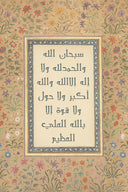 سبحان الله
والحمدلله ولا
إله الاالله والله
أكبر ولا حول
ولا قوة الا
بالله العلي
العظيم